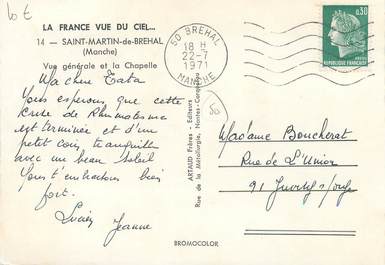 LA FRANCE VUE DU CIEL...
14 - SAINT-MARTIN-de-BREHAL
(Manche)
Vue générale et la Chapelle
Ma chère Tata
Nous espérons que cette
crise de Rhumatisme
est terminée et d'un
petit coin tranquille
avec un beau soleil
Nous t'embrassons bien
fort.
Lucien Jeanne
50 BREHAL
18 H
22-7
1971
MANCHE
0,30
REPUBLIQUE FRANÇAISE
POSTES
50
ARTAUD Frères - Editeurs
Rue de la Métallurgie, Nantes-Carquefou
Madame Boucherat
Rue de L'Union
91 Juvisy s/orge
BROMOCOLOR